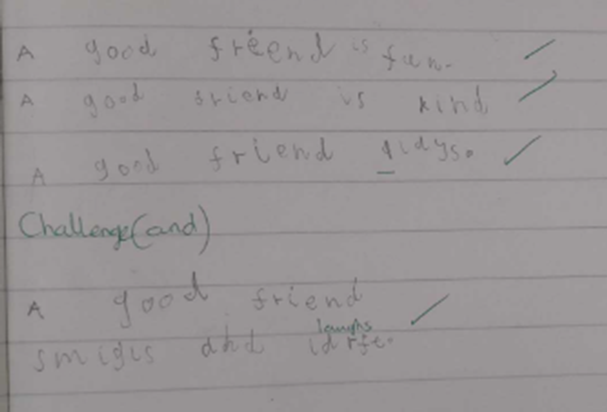 A good freend is fun.
A good friend is kind
A good friend tidys.
Challenge(and)
A good friend
laughs
smigls and larfe.